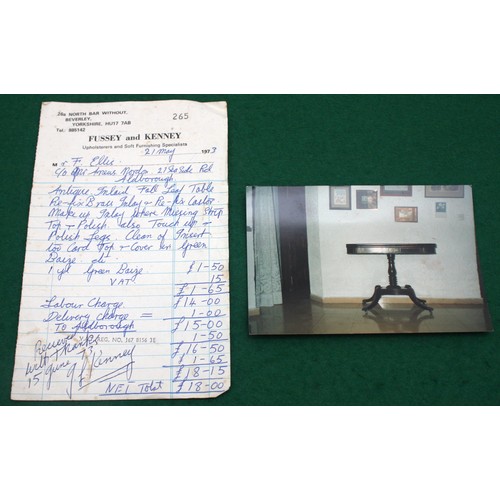 58a NORTH BAR WITHOUT,
BEVERLEY,
YORKSHIRE, HU17 7AB
Tel.: 885142
265
FUSSEY and KENNEY
Upholsterers and Soft Furnishing Specialists
21 May 1973
Mr F. Ellis
C/o Mrs Nordes 21 Sea Side Rd
Aldborough
Antique Inlaid Fall Leaf Table
Re-fix Brass Inlay + Re-fix Castor
Make up Inlay where Missing Strip
Top + Polish also Touch up +
Polish Legs. Clean of Insert
100 Card Top + Cover in Green
Baize etc
1 yd Green Baize £1-50
VAT 15
£1-65
Labour Charge £14-00
Delivery Charge = 1-00
To Aldborough £15-00
1-50
REG. NO. 167 8136 31
£16-50
1-65
£18-15
NET Total £18-00
Received
With Thanks
15 June 73
Kenney